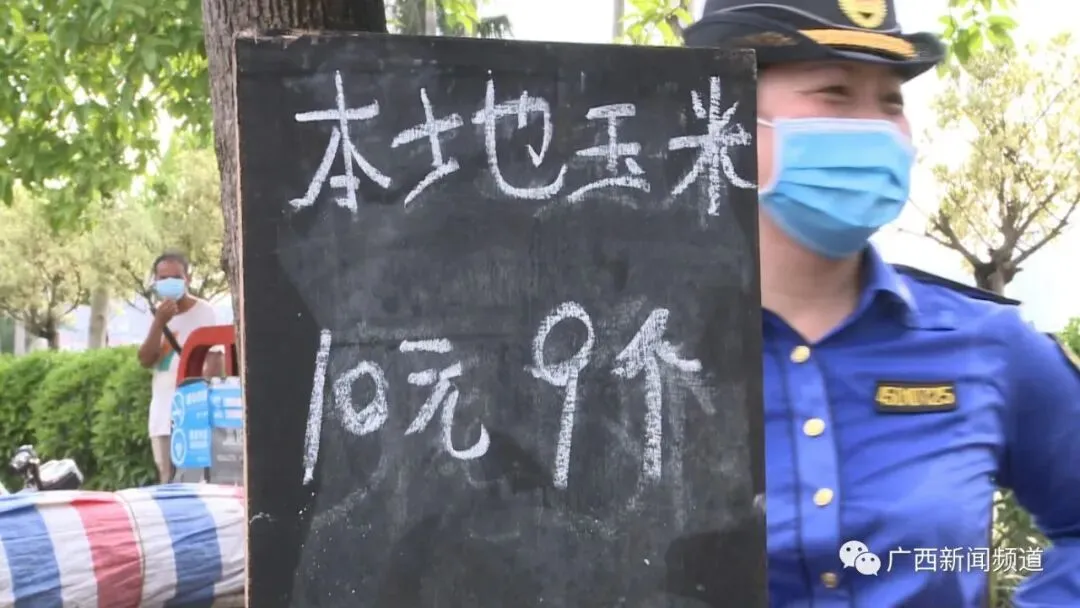 本地玉米
10元9个
广西新闻频道